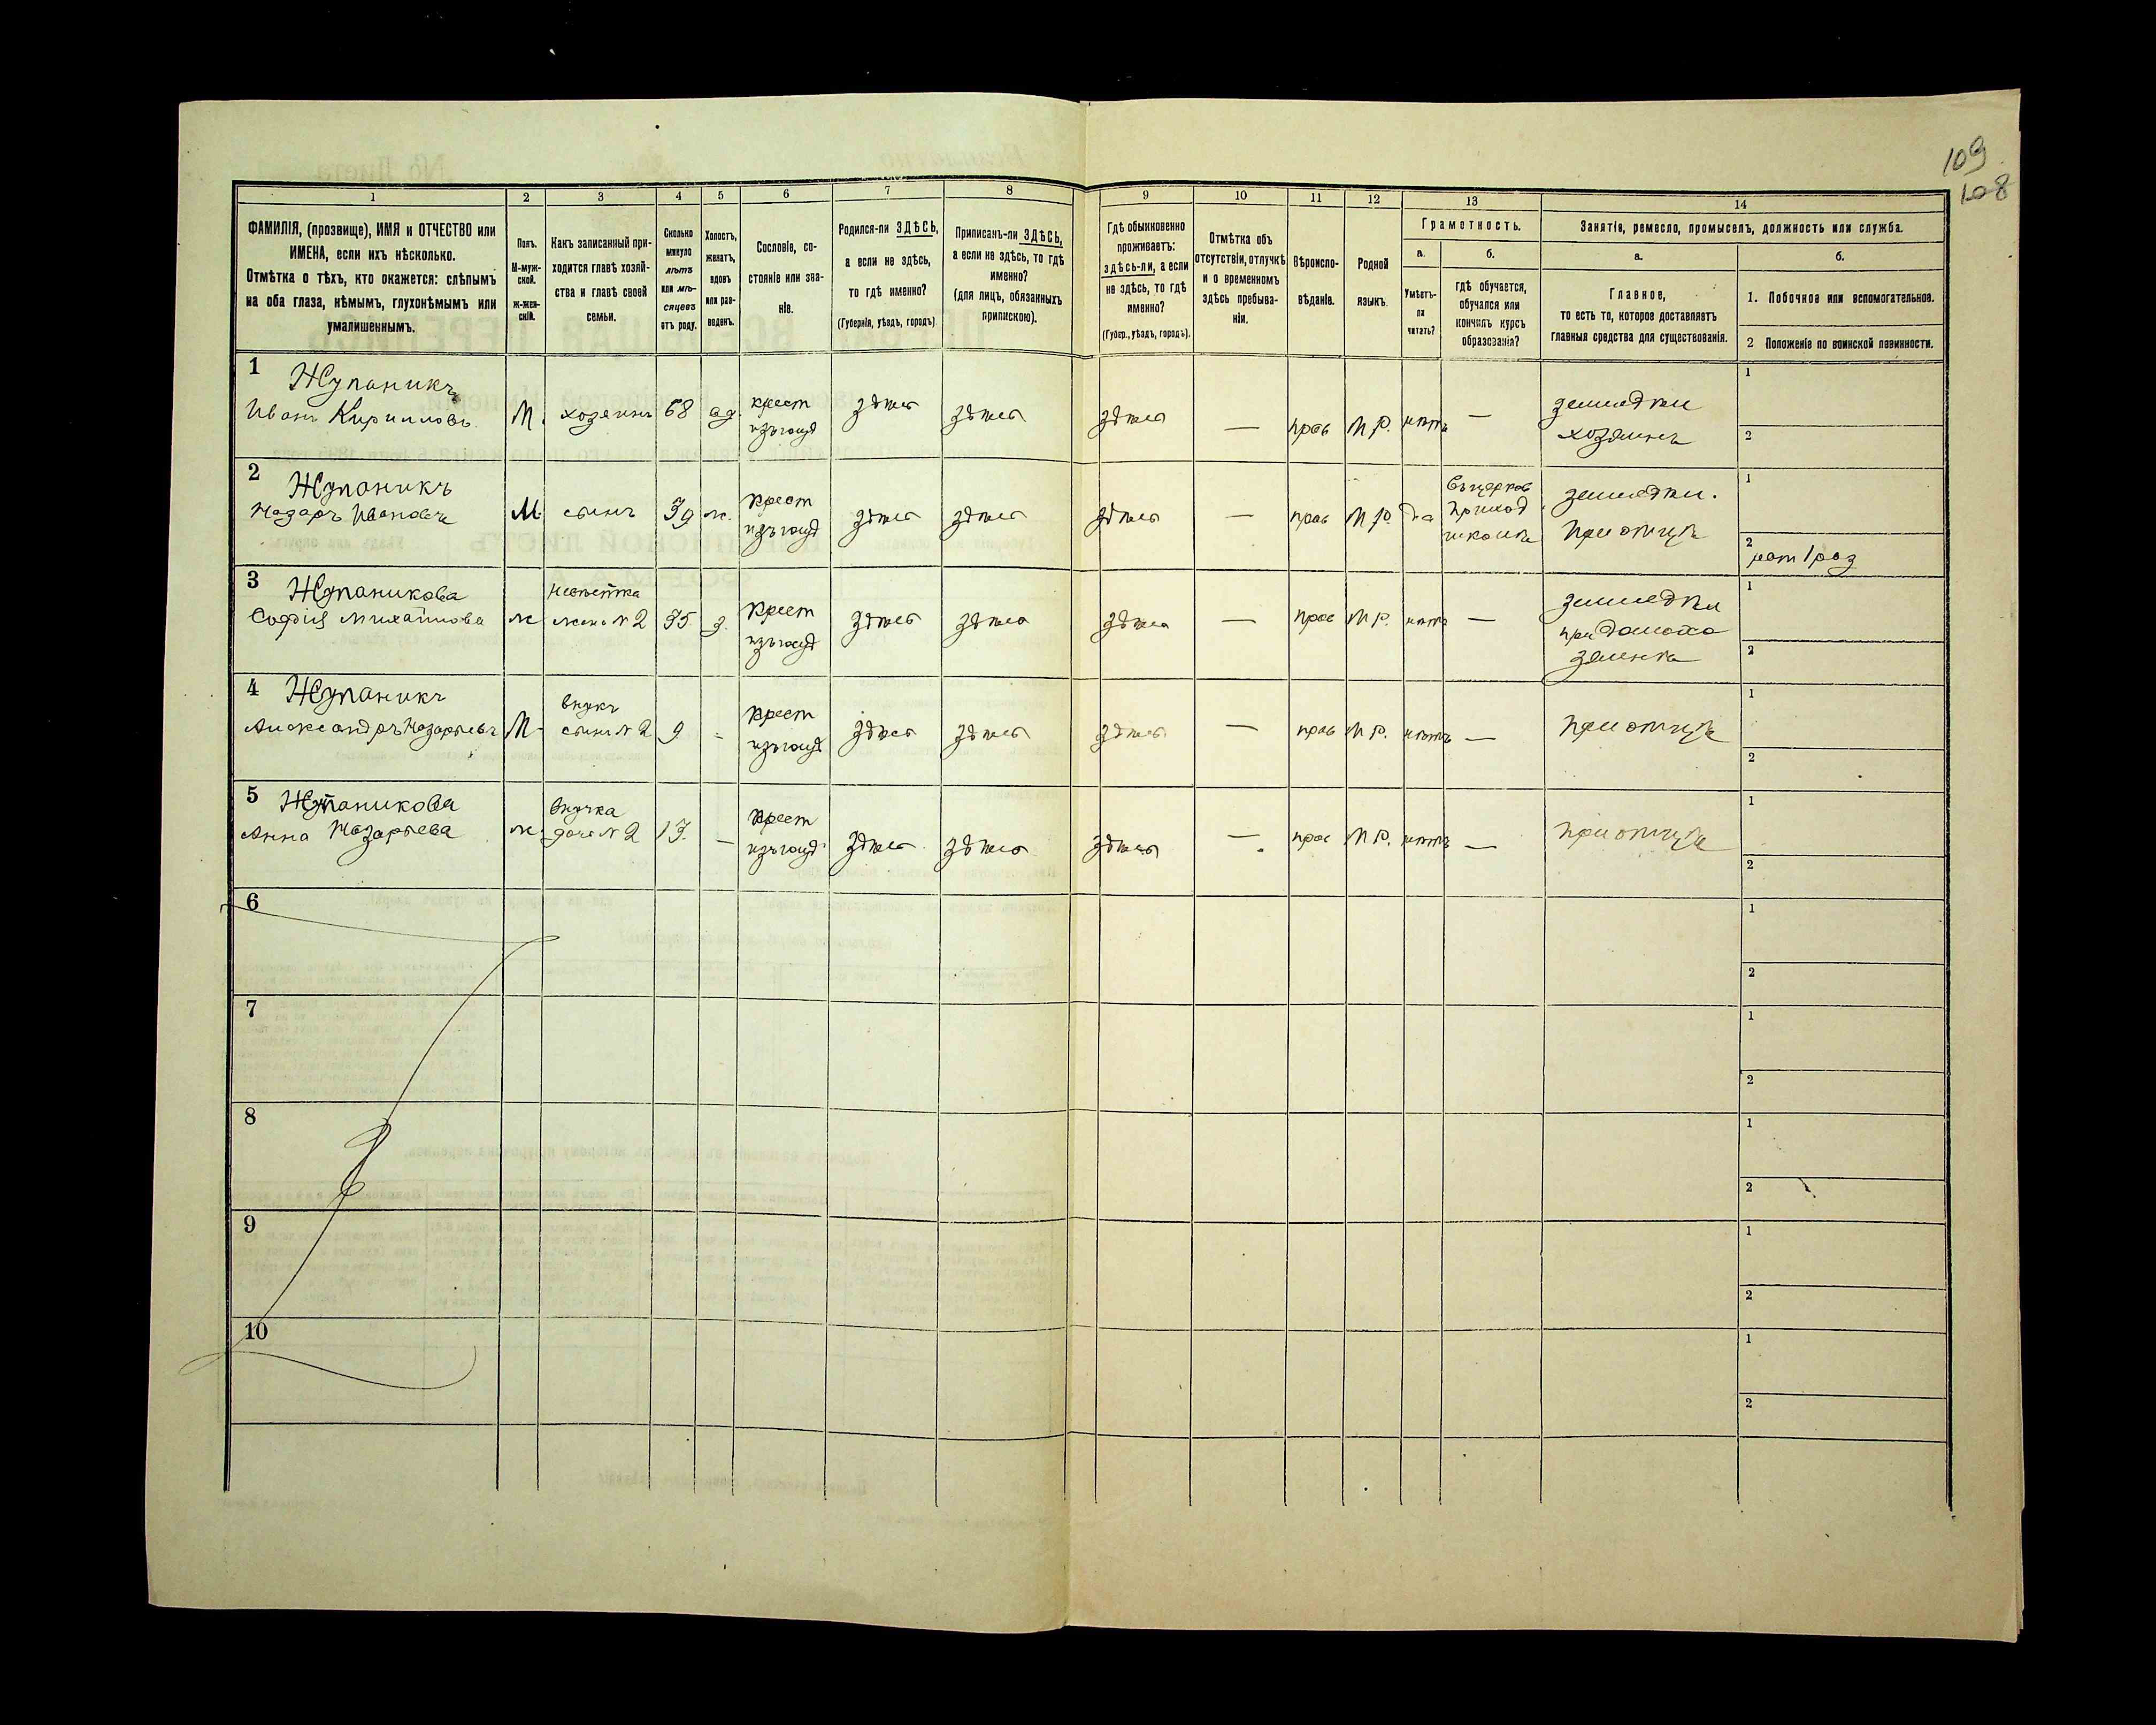 109
108
1
2
3
4
5
6
7
8
9
10
11
12
13
14
ФАМИЛІЯ, (прозвище), ИМЯ и ОТЧЕСТВО или
ИМЕНА, если ихъ нѣсколько.
Отмѣтка о тѣхъ, кто окажется: слѣпымъ
на оба глаза, нѣмымъ, глухонѣмымъ или
умалишеннымъ.
Полъ.
М-муж-
ской.
ж-жен-
скій.
Какъ записанный при-
ходится главѣ хозяй-
ства и главѣ своей
семьи.
Сколько
минуло
лѣтъ
или мѣ-
сяцевъ
отъ роду.
Холостъ,
женатъ,
вдовъ
или раз-
веденъ.
Сословіе, со-
стояніе или зва-
ніе.
Родился-ли ЗДѢСЬ,
а если не здѣсь,
то гдѣ именно?
(Губернія, уѣздъ, городъ)
Приписанъ-ли ЗДѢСЬ,
а если не здѣсь, то гдѣ
именно?
(для лицъ, обязанныхъ
припискою).
Гдѣ обыкновенно
проживаетъ:
здѣсь-ли, а если
не здѣсь, то гдѣ
именно?
(Губер., уѣздъ, городъ).
Отмѣтка объ
отсутствіи, отлучкѣ
и о временномъ
здѣсь пребыва-
ніи.
Вѣроиспо-
вѣданіе.
Родной
языкъ.
Грамотность.
а.
Умѣетъ-
ли
читать?
б.
гдѣ обучается,
обучался или
кончилъ курсъ
образованія?
Занятіе, ремесло, промыселъ, должность или служба.
а.
Главное,
то есть то, которое доставляетъ
главныя средства для существованія.
б.
1. Побочное или вспомогательное.
2 Положеніе по воинской повинности.
1
Жупаникъ
Иванъ Кирилловъ
М.
хозяинъ
68
вд.
крест
изъ госуд
здѣсь
здѣсь
здѣсь
—
прав
М Р.
нѣтъ
—
земледѣл
хозяинъ
1
2
2
Жупаникъ
Назаръ Ивановъ
М
сынъ
39
ж.
крест
изъ госуд
здѣсь
здѣсь
здѣсь
—
прав
М Р.
да
въ церков
приход
школѣ
земледѣл.
при отцѣ
1
2
рат 1 раз
3
Жупаникова
Софія Михайлова
ж
невѣстка
жена № 2
35
з.
крест
изъ госуд
здѣсь
здѣсь
здѣсь
—
прав
М Р.
нѣтъ
—
земледѣл
при домохо
зяинѣ
1
2
4
Жупаникъ
Александръ Назарьевъ
М
внукъ
сынъ № 2
9
-
крест
изъ госуд
здѣсь
здѣсь
здѣсь
—
прав
М Р.
нѣтъ
—
при отцѣ
1
2
5
Жупаникова
Анна Назарьева
ж
внучка
дочь № 2
13.
—
крест
изъ госуд
здѣсь
здѣсь
здѣсь
—
прав
М Р.
нѣтъ
—
при отцѣ
1
2
6
1
2
7
1
2
8
1
2
9
1
2
10
1
2